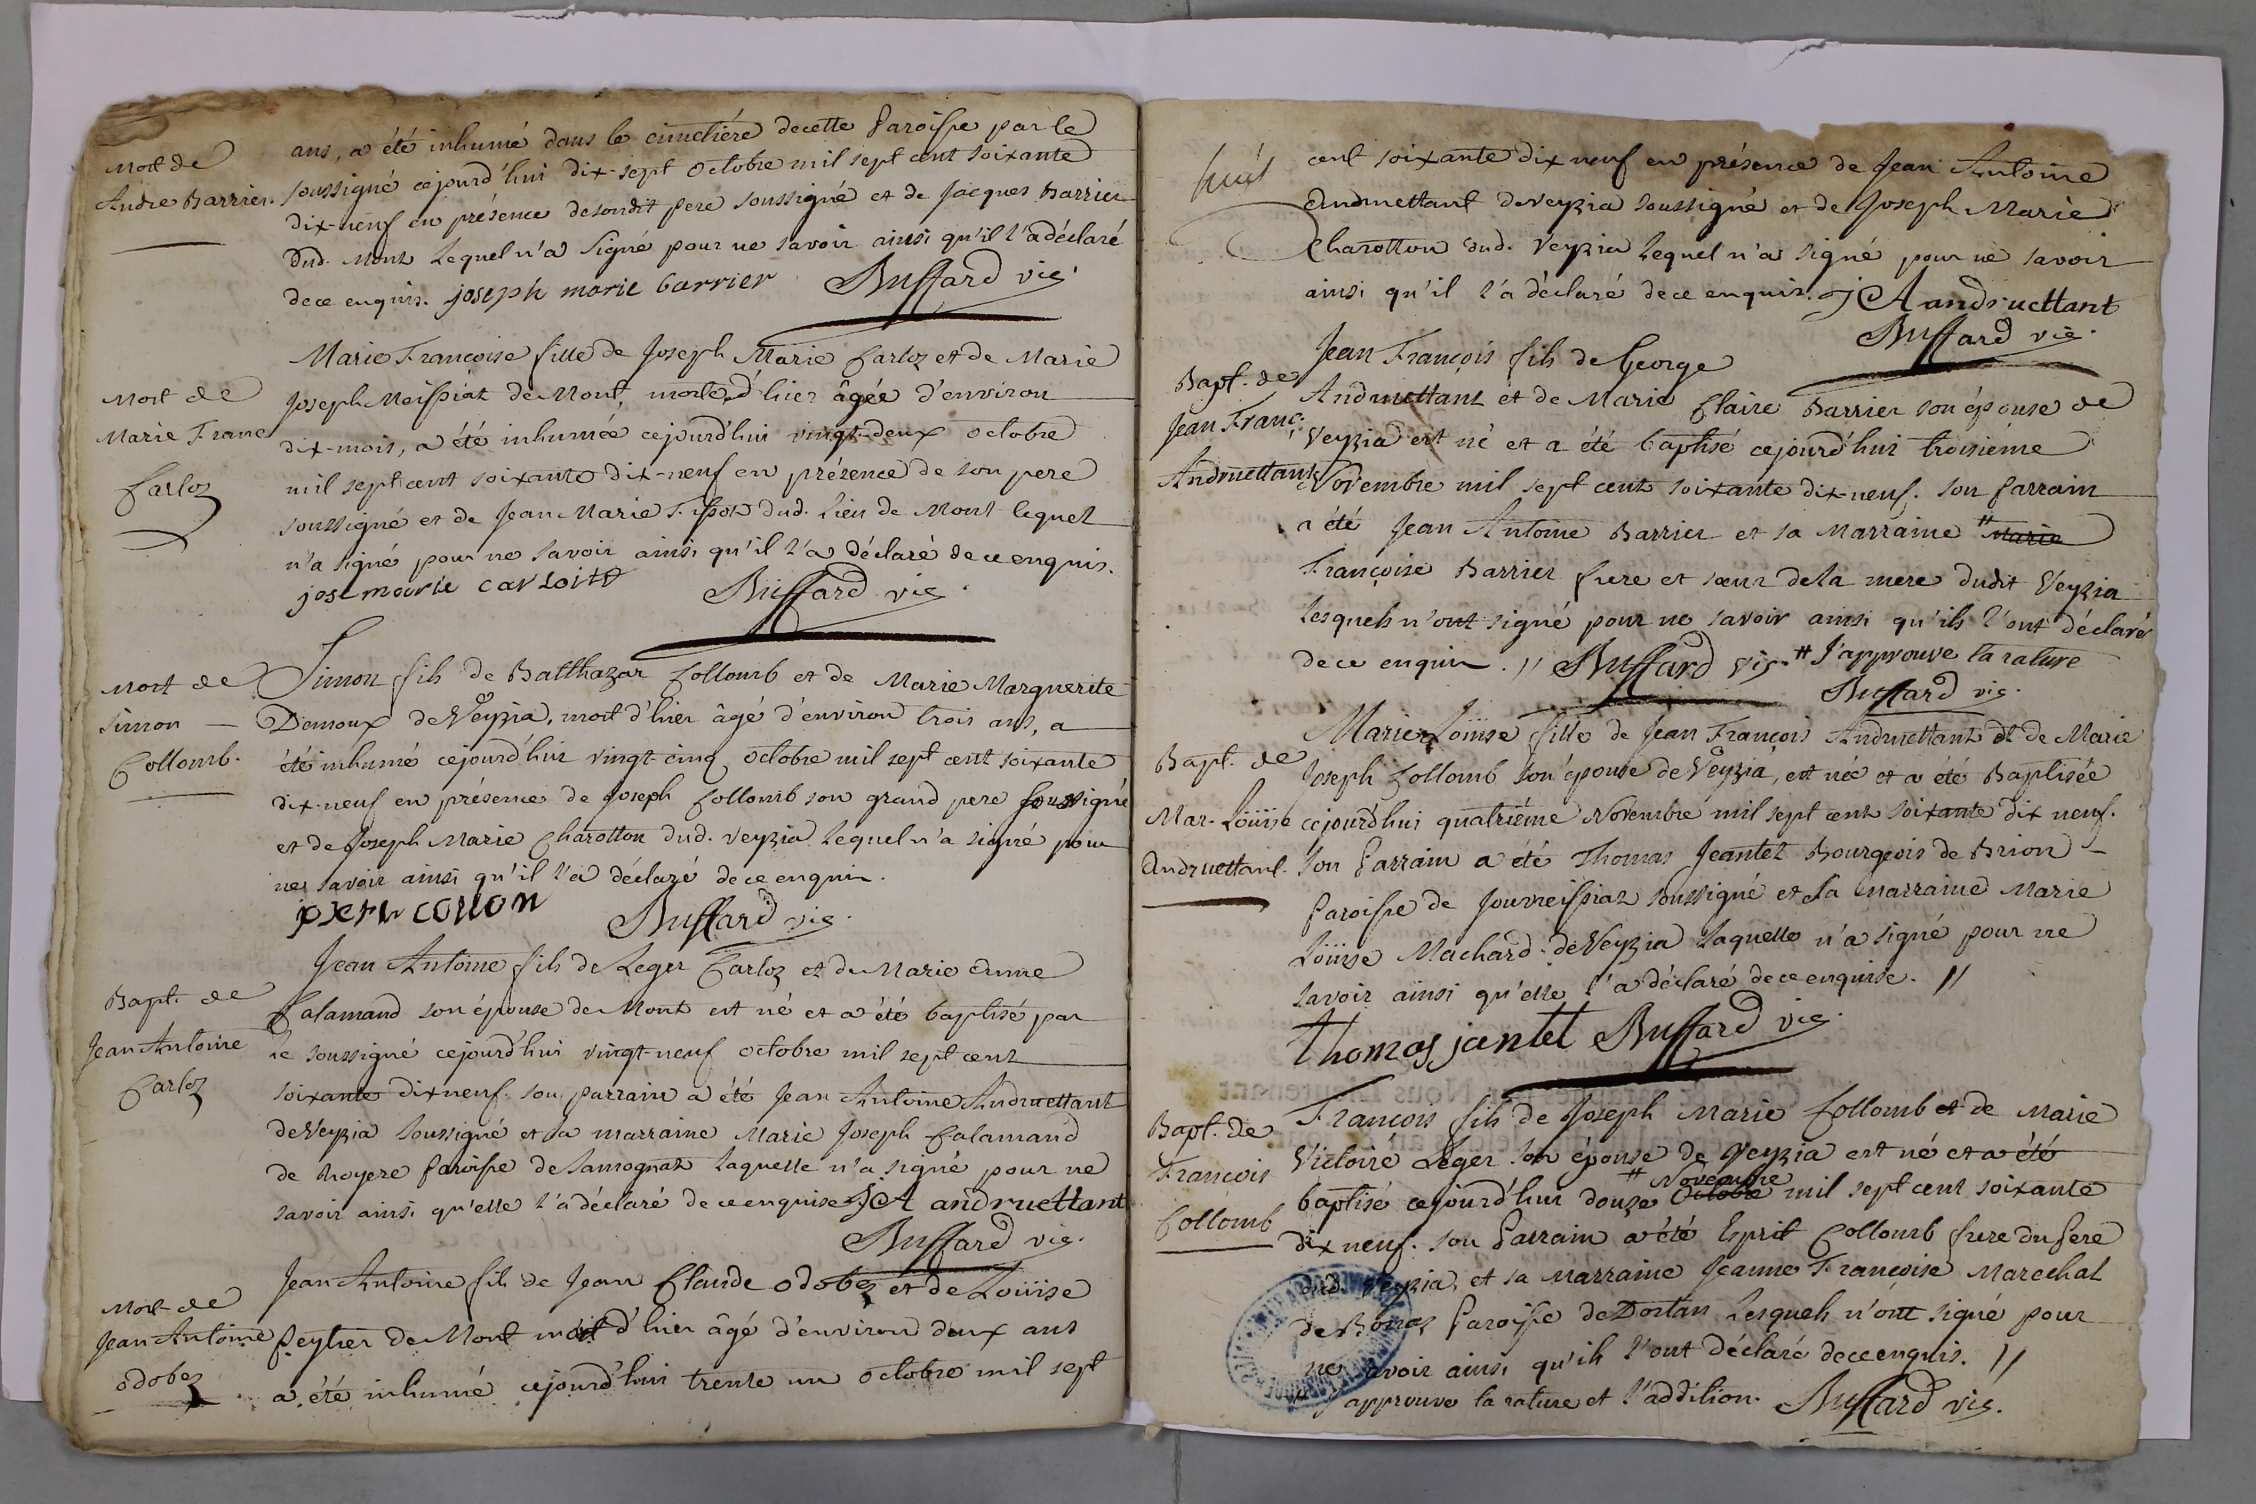 Mort de
Andre Barrier.
ans, a été inhumé dans le cimetiére decette Paroisse par le
soussigné cejourd'hui dix-sept octobre mil sept cent soixante
dix-neuf en présence desondit pere soussigné et de Jacques Barrier
dud. Mont Lequel n'a signé pour ne savoir ainsi qu'il l'a déclaré
de ce enquis. joseph marie barrier Buffard vic.
Mort de
Marie Franc
Carloz
Marie Françoise fille de Joseph Marie Carloz et de Marie
Joseph Moissiat de Mont, morte d'hier âgée d'environ
dix-mois, a été inhumée cejourd'hui vingt-deux octobre
mil sept cent soixante dix-neuf en présence de son pere
soussigné et de Jean Marie Tissot dud. Lieu de Mont lequel
n'a signé pour ne savoir ainsi qu'il l'a déclaré de ce enquis.
jose marie Buffard vic.
Mort de
Simon
Collomb.
Simon fils de Balthazar Collomb et de Marie Marguerite
Demoux de Veyzia, mort d'hier âgé d'environ trois ans, a
été inhumé cejourd'hui vingt-cinq octobre mil sept cent soixante
dix-neuf en présence de Joseph Collomb son grand pere soussigné
et de Joseph Marie Charotton dud. Veyzia Lequel n'a signé pour
ne savoir ainsi qu'il l'a déclaré de ce enquis.
Buffard vic.
Bapt. de
Jean Antoine
Carloz
Jean Antoine fils de Leger Carloz et de Marie Anne
Calamand son épouse de Mont est né et a été baptisé par
le soussigné cejourd'hui vingt-neuf octobre mil sept cent
soixante dix neuf. son parrain a été Jean Antoine Andruettant
de Veyzia soussigné et sa marraine Marie Joseph Calamand
de Royere Paroisse de Samognat laquelle n'a signé pour ne
savoir ainsi qu'elle l'a déclaré de ce enquise JA andruettant
Buffard vic.
Mort de
Jean Antoine
Odobez
Jean Antoine fils de Jean Claude Odobez et de Loüise
Peytier de Mont mort d'hier âgé d'environ deux ans
a été inhumé cejourd'hui trente un octobre mil sept
huit
cent soixante dix neuf en présence de Jean Antoine
Andruettant de Veyzia soussigné et de Joseph Marie
Charotton dud. Veyzia Lequel n'a signé pour ne savoir
ainsi qu'il l'a déclaré de ce enquis. JA andruettant
Buffard vic.
Bapt. de
Jean Franç.
Andruettant
Jean François fils de George
Andruettant et de Marie Claire Barrier son épouse de
Veyzia est né et a été baptisé cejourd'hui troisiéme
Novembre mil sept cent soixante dix-neuf. son Parrain
a été Jean Antoine Barrier et sa Marraine # Marie
Françoise Barrier frere et sœur de la mere dudit Veyzia
Lesquels n'ont signé pour ne savoir ainsi qu'ils l'ont déclaré
de ce enquis. // Buffard vic. # J'approuve la rature
Buffard vic.
Bapt. de
Mar. Loüise
Andruettant.
Marie Loüise fille de Jean François Andruettant et de Marie
Joseph Collomb son épouse de Veyzia, est née et a été Baptisée
cejourd'hui quatriéme Novembre mil sept cent soixante dix neuf.
son Parrain a été Thomas Jeantet Bourgeois de Brion
Paroisse de Journeissiat soussigné et sa Marraine Marie
Loüise Machard de Veyzia laquelle n'a signé pour ne
savoir ainsi qu'elle l'a déclaré de ce enquise. //
thomas jantet Buffard vic.
Bapt. de
François
Collomb
François fils de Joseph Marie Collomb et de Marie
Victoire Leger son épouse de Veyzia est né et a été
# Novembre
baptisé cejourd'hui douze Octobre mil sept cent soixante
dix neuf. son Parrain a été Esprit Collomb frere du Pere
dud. Veyzia, et sa Marraine Jeanne Françoise Marechal
de Paroisse de Dortan Lesquels n'ont signé pour
ne savoir ainsi qu'ils l'ont déclaré de ce enquis. //
# J'approuve la rature et l'addition. Buffard vic.